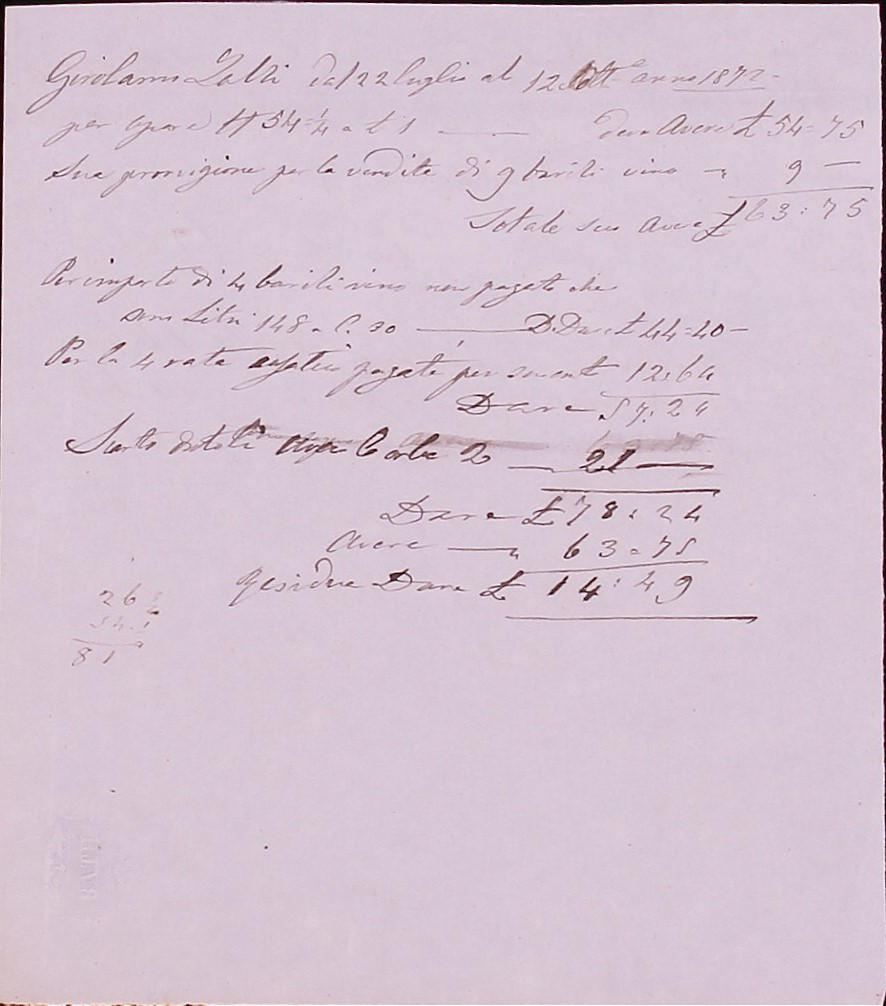 Girolamo dal 22 luglio al 12 Ott anno 1872
per opere N 54 a £ 1 — deve Avere £ 54=75
Sua provigione per la vendita di 9 barili vino — 9 —
Totale suo Avere £ 63:75
Per importo di 4 barili vino non pagato che
sono Litri 148 a C. 30 — Dare £ 44=40 —
Per la 4 rata pagata per 12:64
Dare 57:24
2 — 21 —
Dare £ 78:24
Avere — 63=75
Residuo Dare £ 14:49
26
54
81